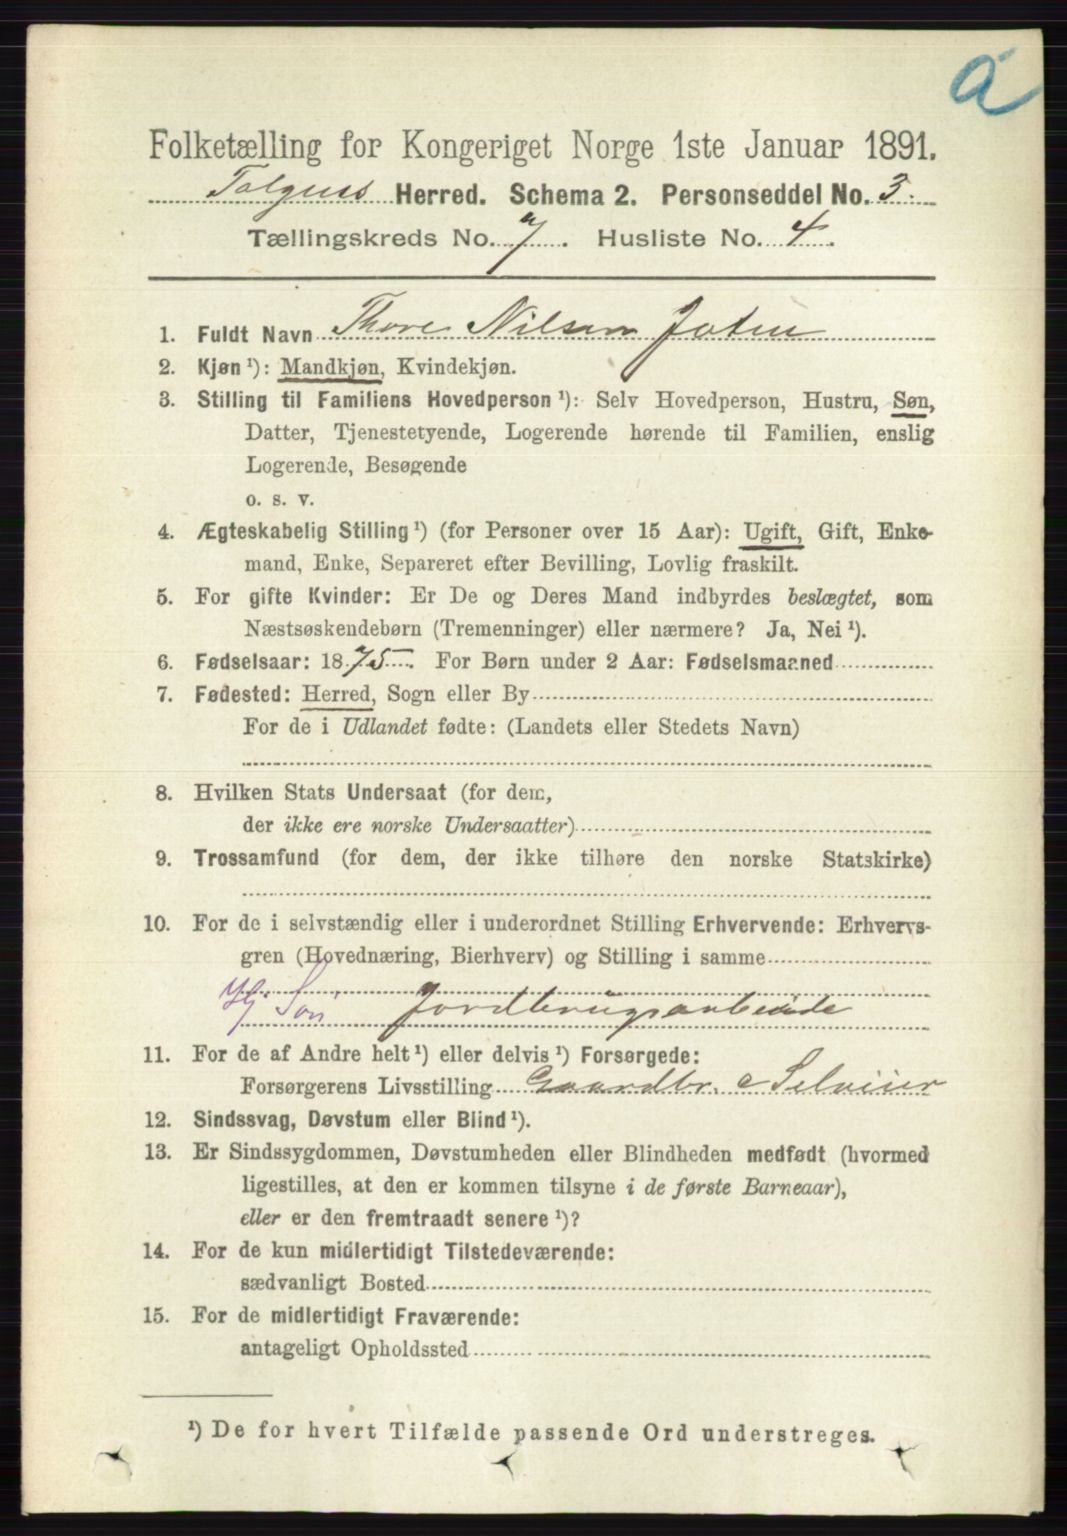 a
Folketælling for Kongeriget Norge 1ste Januar 1891.
Herred. Schema 2. Personseddel No. 3.
Tællingskreds No. 7. Husliste No. 4.
1. Fuldt Navn Thore Nilsen Joten
2. Kjøn ¹): Mandkjøn, Kvindekjøn.
3. Stilling til Familiens Hovedperson ¹): Selv Hovedperson, Hustru, Søn,
Datter, Tjenestetyende, Logerende hørende til Familien, enslig
Logerende, Besøgende
o. s. v.
4. Ægteskabelig Stilling ¹) (for Personer over 15 Aar): Ugift, Gift, Enke-
mand, Enke, Separeret efter Bevilling, Lovlig fraskilt.
5. For gifte Kvinder: Er De og Deres Mand indbyrdes beslægtet, som
Næstsøskendebørn (Tremenninger) eller nærmere? Ja, Nei ¹).
6. Fødselsaar: 1875. For Børn under 2 Aar: Fødselsmaaned
7. Fødested: Herred, Sogn eller By
For de i Udlandet fødte: (Landets eller Stedets Navn)
8. Hvilken Stats Undersaat (for dem,
der ikke ere norske Undersaatter)
9. Trossamfund (for dem, der ikke tilhøre den norske Statskirke)
10. For de i selvstændig eller i underordnet Stilling Erhvervende: Erhvervs-
gren (Hovednæring, Bierhverv) og Stilling i samme
Hj. Søn Jordbrugsarbeide
11. For de af Andre helt ¹) eller delvis ¹) Forsørgede:
Forsørgerens Livsstilling Gaardbr. e Selveier
12. Sindssvag, Døvstum eller Blind ¹).
13. Er Sindssygdommen, Døvstumheden eller Blindheden medfødt (hvormed
ligestilles, at den er kommen tilsyne i de første Barneaar),
eller er den fremtraadt senere ¹)?
14. For de kun midlertidigt Tilstedeværende:
sædvanligt Bosted
15. For de midlertidigt Fraværende:
antageligt Opholdssted
¹) De for hvert Tilfælde passende Ord understreges.